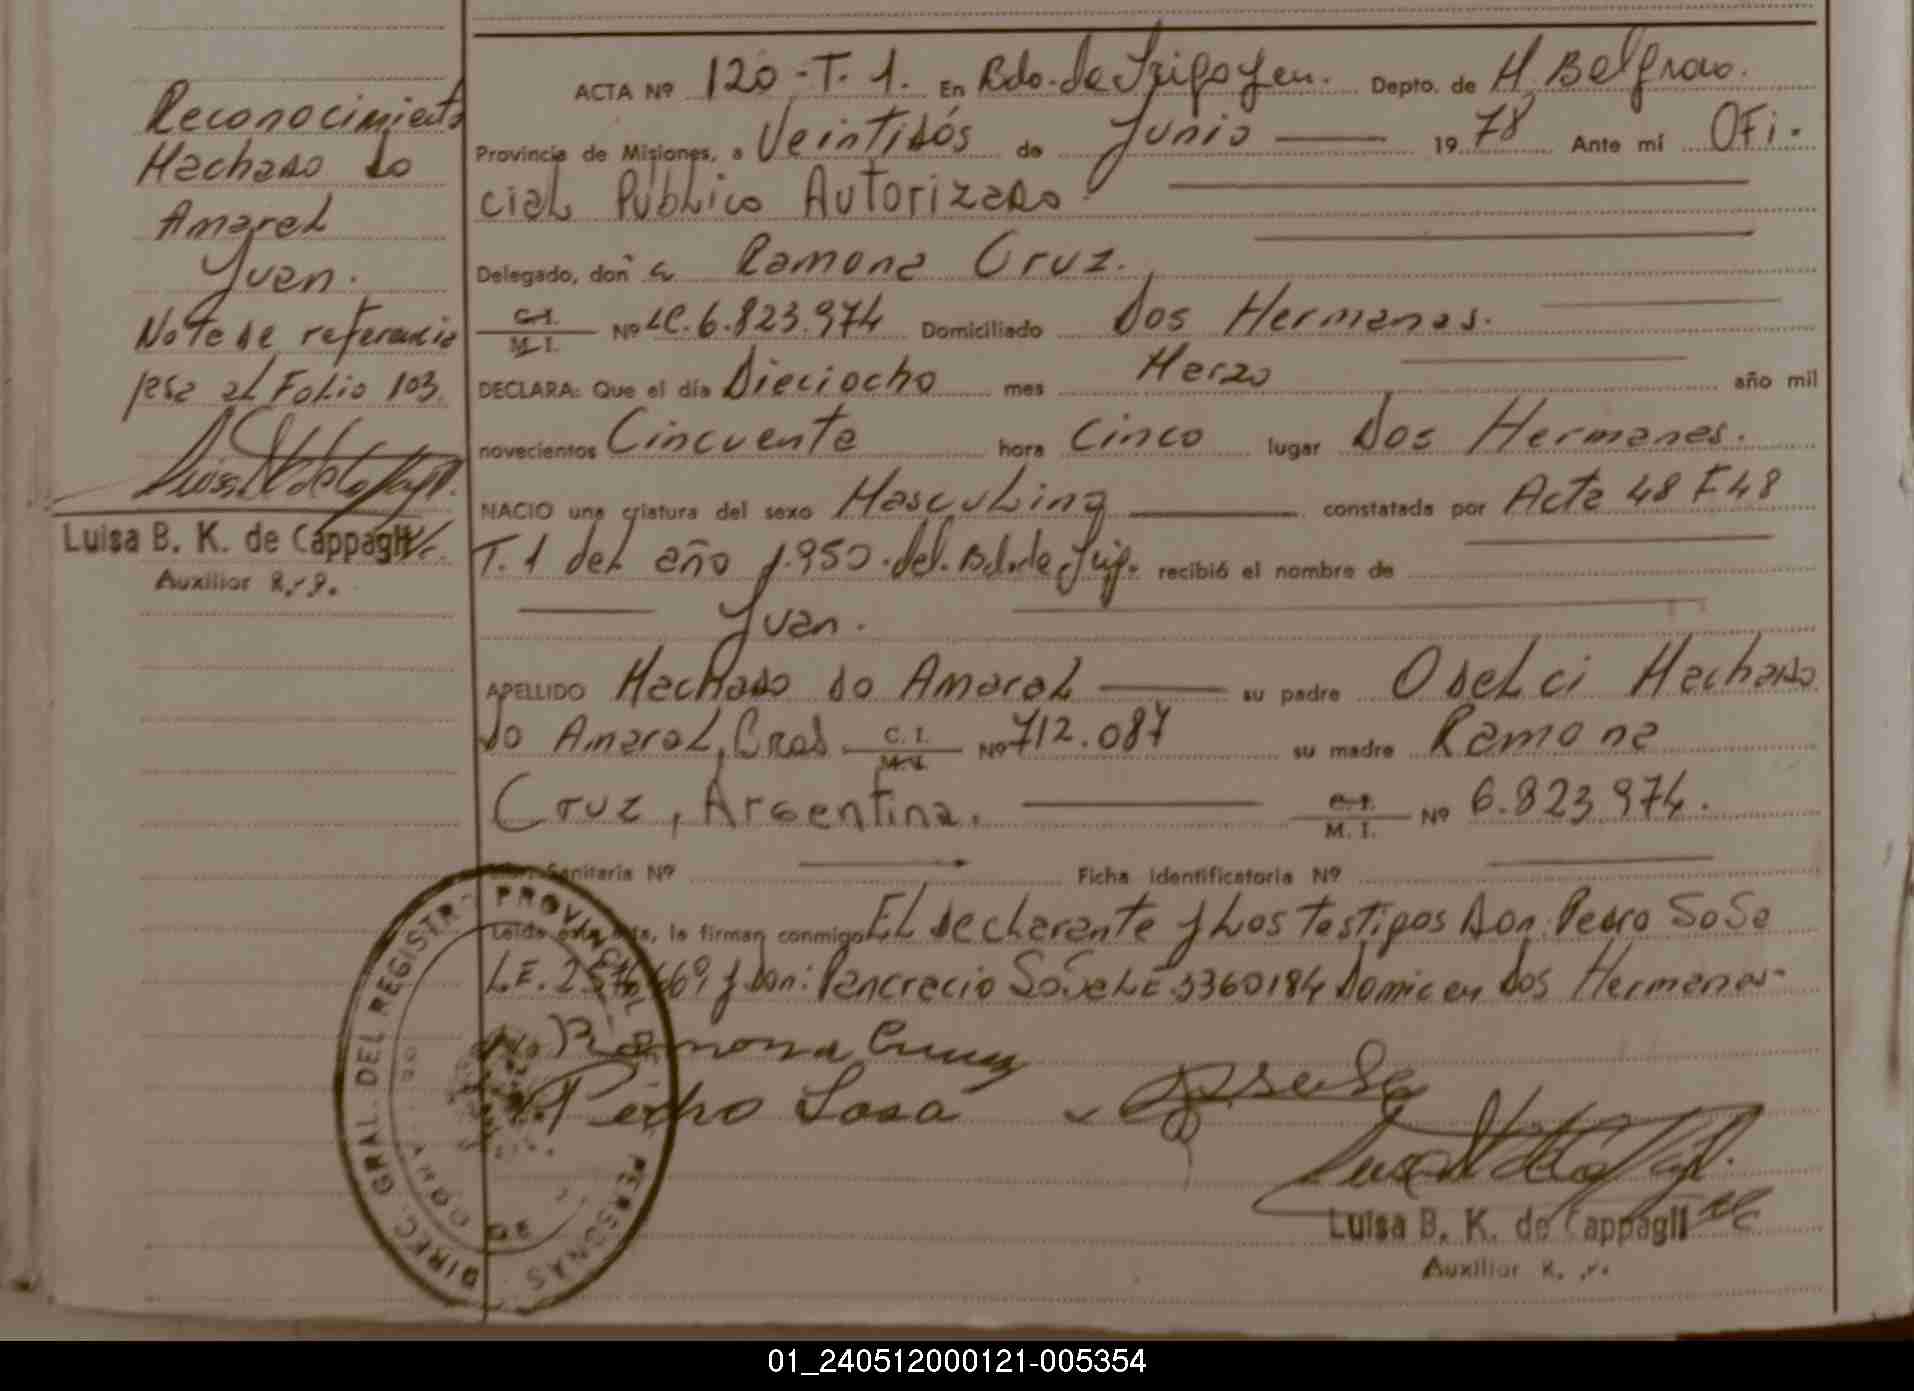 Reconocimiento
Machado do
Amaral
Juan.
Nota de referencia
pasa al Folio 103.
Luisa B. K. de Cappagli
Auxiliar
ACTA Nº 120 - T. 1. En Bdo. de Irigoyen. Depto. de M. Belgrano.
Provincia de Misiones, a Veintidós de Junio 1978 Ante mi Ofi-
cial Público Autorizado
Delegado, doña Ramona Cruz.
C. I. / M. I. Nº LC. 6.823.974 Domiciliado Dos Hermanas.
DECLARA: Que el día Dieciocho mes Marzo año mil
novecientos Cincuenta hora Cinco lugar Dos Hermanas.
NACIO una criatura del sexo Masculino constatada por Acta 48 F 48
T. 1 del año 1.950 del Bdo. de Irig. recibió el nombre de
Juan.
APELLIDO Machado do Amaral su padre Odelci Machado
do Amaral, Bras. C. I. / M. I. Nº 712.087 su madre Ramona
Cruz, Argentina. C. I. / M. I. Nº 6.823.974.
Sanitaria Nº Ficha Identificatoria Nº
Leida esta acta, la firman conmigo El declarante y Los testigos Don Pedro Sosa
L.E. y Don: Pancracio Sosa L.E. 3360184 Domic en Dos Hermanas-
Ramona Cruz
Pedro Sosa
Luisa B. K. de Cappagli
Auxiliar
DIREC. GRAL. DEL REGISTRO PROVINCIAL DE PERSONAS
01_240512000121-005354